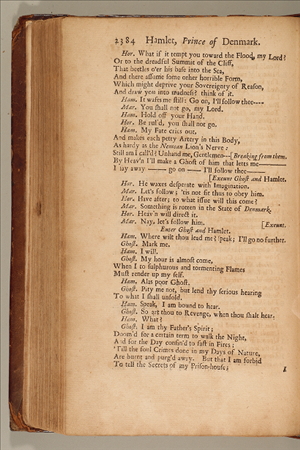 2384 Hamlet, Prince of Denmark.
Hor. What if it tempt you toward the Flood, my Lord?
Or to the dreadful Summit of the Cliff,
That beetles o'er his base into the Sea,
And there assume some other horrible Form,
Which might deprive your Sovereignty of Reason,
And draw you into madness? think of it.
Ham. It wafts me still: Go on, I'll follow thee----
Mar. You shall not go, my Lord.
Ham. Hold off your Hand.
Hor. Be rul'd, you shall not go.
Ham. My Fate cries out,
And makes each petty Artery in this Body,
As hardy as the Nemean Lion's Nerve:
Still am I call'd? Unhand me, Gentlemen--[Breaking from them.
By Heav'n I'll make a Ghost of him that lets me----
I say away ---- go on ---- I'll follow thee----
[Exeunt Ghost and Hamlet.
Hor. He waxes desperate with Imagination.
Mar. Let's follow; 'tis not fit thus to obey him.
Hor. Have after; to what issue will this come?
Mar. Something is rotten in the State of Denmark.
Hor. Heav'n will direct it.
Mar. Nay, let's follow him. [Exeunt.
Enter Ghost and Hamlet.
Ham. Where wilt thou lead me? speak; I'll go no further.
Ghost. Mark me.
Ham. I will.
Ghost. My hour is almost come,
When I to sulphurous and tormenting Flames
Must render up my self.
Ham. Alas poor Ghost.
Ghost. Pity me not, but lend thy serious hearing
To what I shall unfold.
Ham. Speak, I am bound to hear.
Ghost. So art thou to Revenge, when thou shalt hear.
Ham. What?
Ghost. I am thy Father's Spirit;
Doom'd for a certain term to walk the Night,
And for the Day confin'd to fast in Fires;
'Till the foul Crimes done in my Days of Nature,
Are burnt and purg'd away. But that I am forbid
To tell the Secrets of my Prison-house;